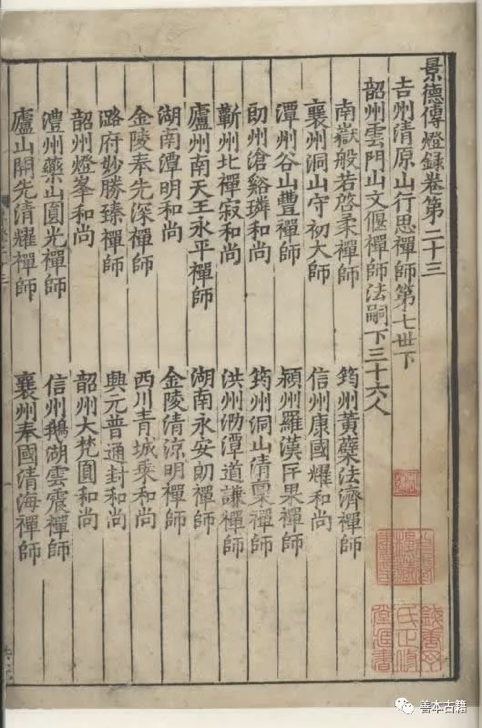 景德傳燈錄卷第二十三
吉州清原山行思禪師第七世下
韶州雲門山文偃禪師法嗣下三十六人
南嶽般若啓柔禪師 筠州黃蘗法濟禪師
襄州洞山守初大師 信州康國耀和尚
潭州谷山豐禪師 潁州羅漢匡果禪師
朗州滄谿璘和尚 筠州洞山清稟禪師
蘄州北禪寂和尚 洪州泐潭道謙禪師
廬州南天王永平禪師 湖南永安朗禪師
湖南潭明和尚 金陵清涼明禪師
金陵奉先深禪師 西川青城乘和尚
潞府妙勝臻禪師 興元普通封和尚
韶州燈峯和尚 韶州大梵圓和尚
澧州藥山圓光禪師 信州鵝湖雲震禪師
廬山開先清耀禪師 襄州奉國清海禪師
善本古籍